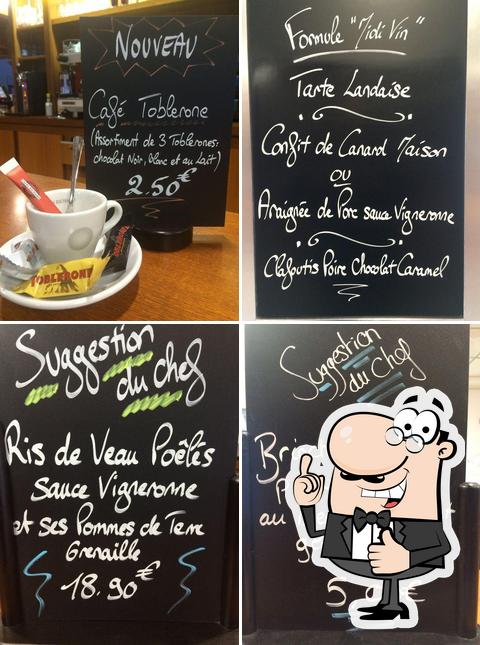 NOUVEAU
Café Toblerone
(Assortiment de 3 Toblerones:
chocolat Noir, Blanc et au Lait)
2.50€
TOBLERONE
Formule "Midi Vin"
Tarte Landaise
Confit de Canard Maison
ou
Araignée de Porc sauce Vigneronne
Clafoutis Poire Chocolat Caramel
Suggestion
du chef
Ris de Veau Poêlés
Sauce Vigneronne
et ses Pommes de Terre
Grenaille
18.90€
Suggestion
du Chef
au